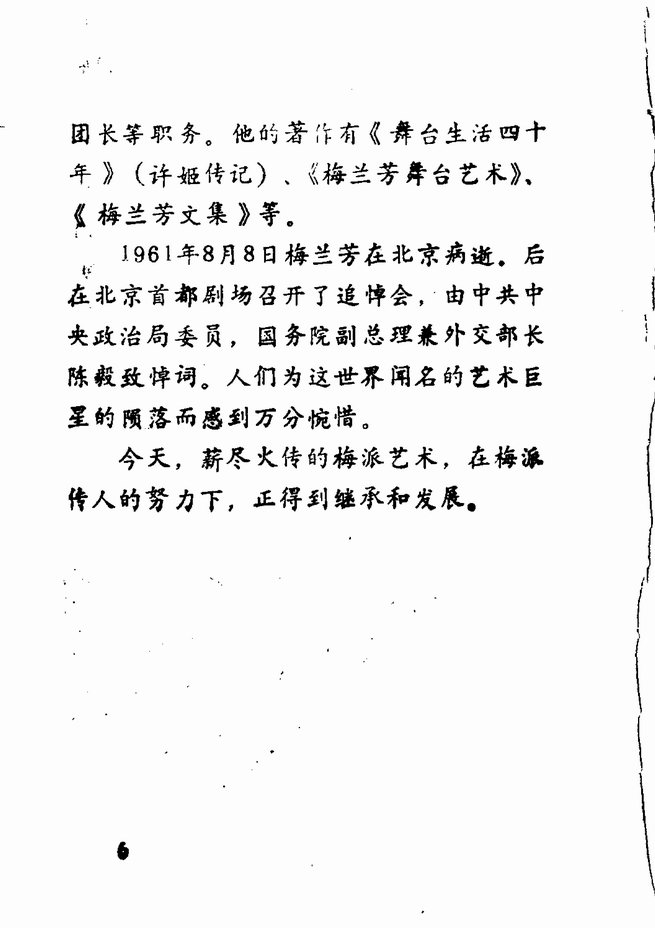 团长等职务。他的著作有《舞台生活四十
年》（许姬传记）、《梅兰芳舞台艺术》、
《梅兰芳文集》等。
1961年8月8日梅兰芳在北京病逝。后
在北京首都剧场召开了追悼会，由中共中
央政治局委员，国务院副总理兼外交部长
陈毅致悼词。人们为这世界闻名的艺术巨
星的陨落而感到万分惋惜。
今天，薪尽火传的梅派艺术，在梅派
传人的努力下，正得到继承和发展。
6